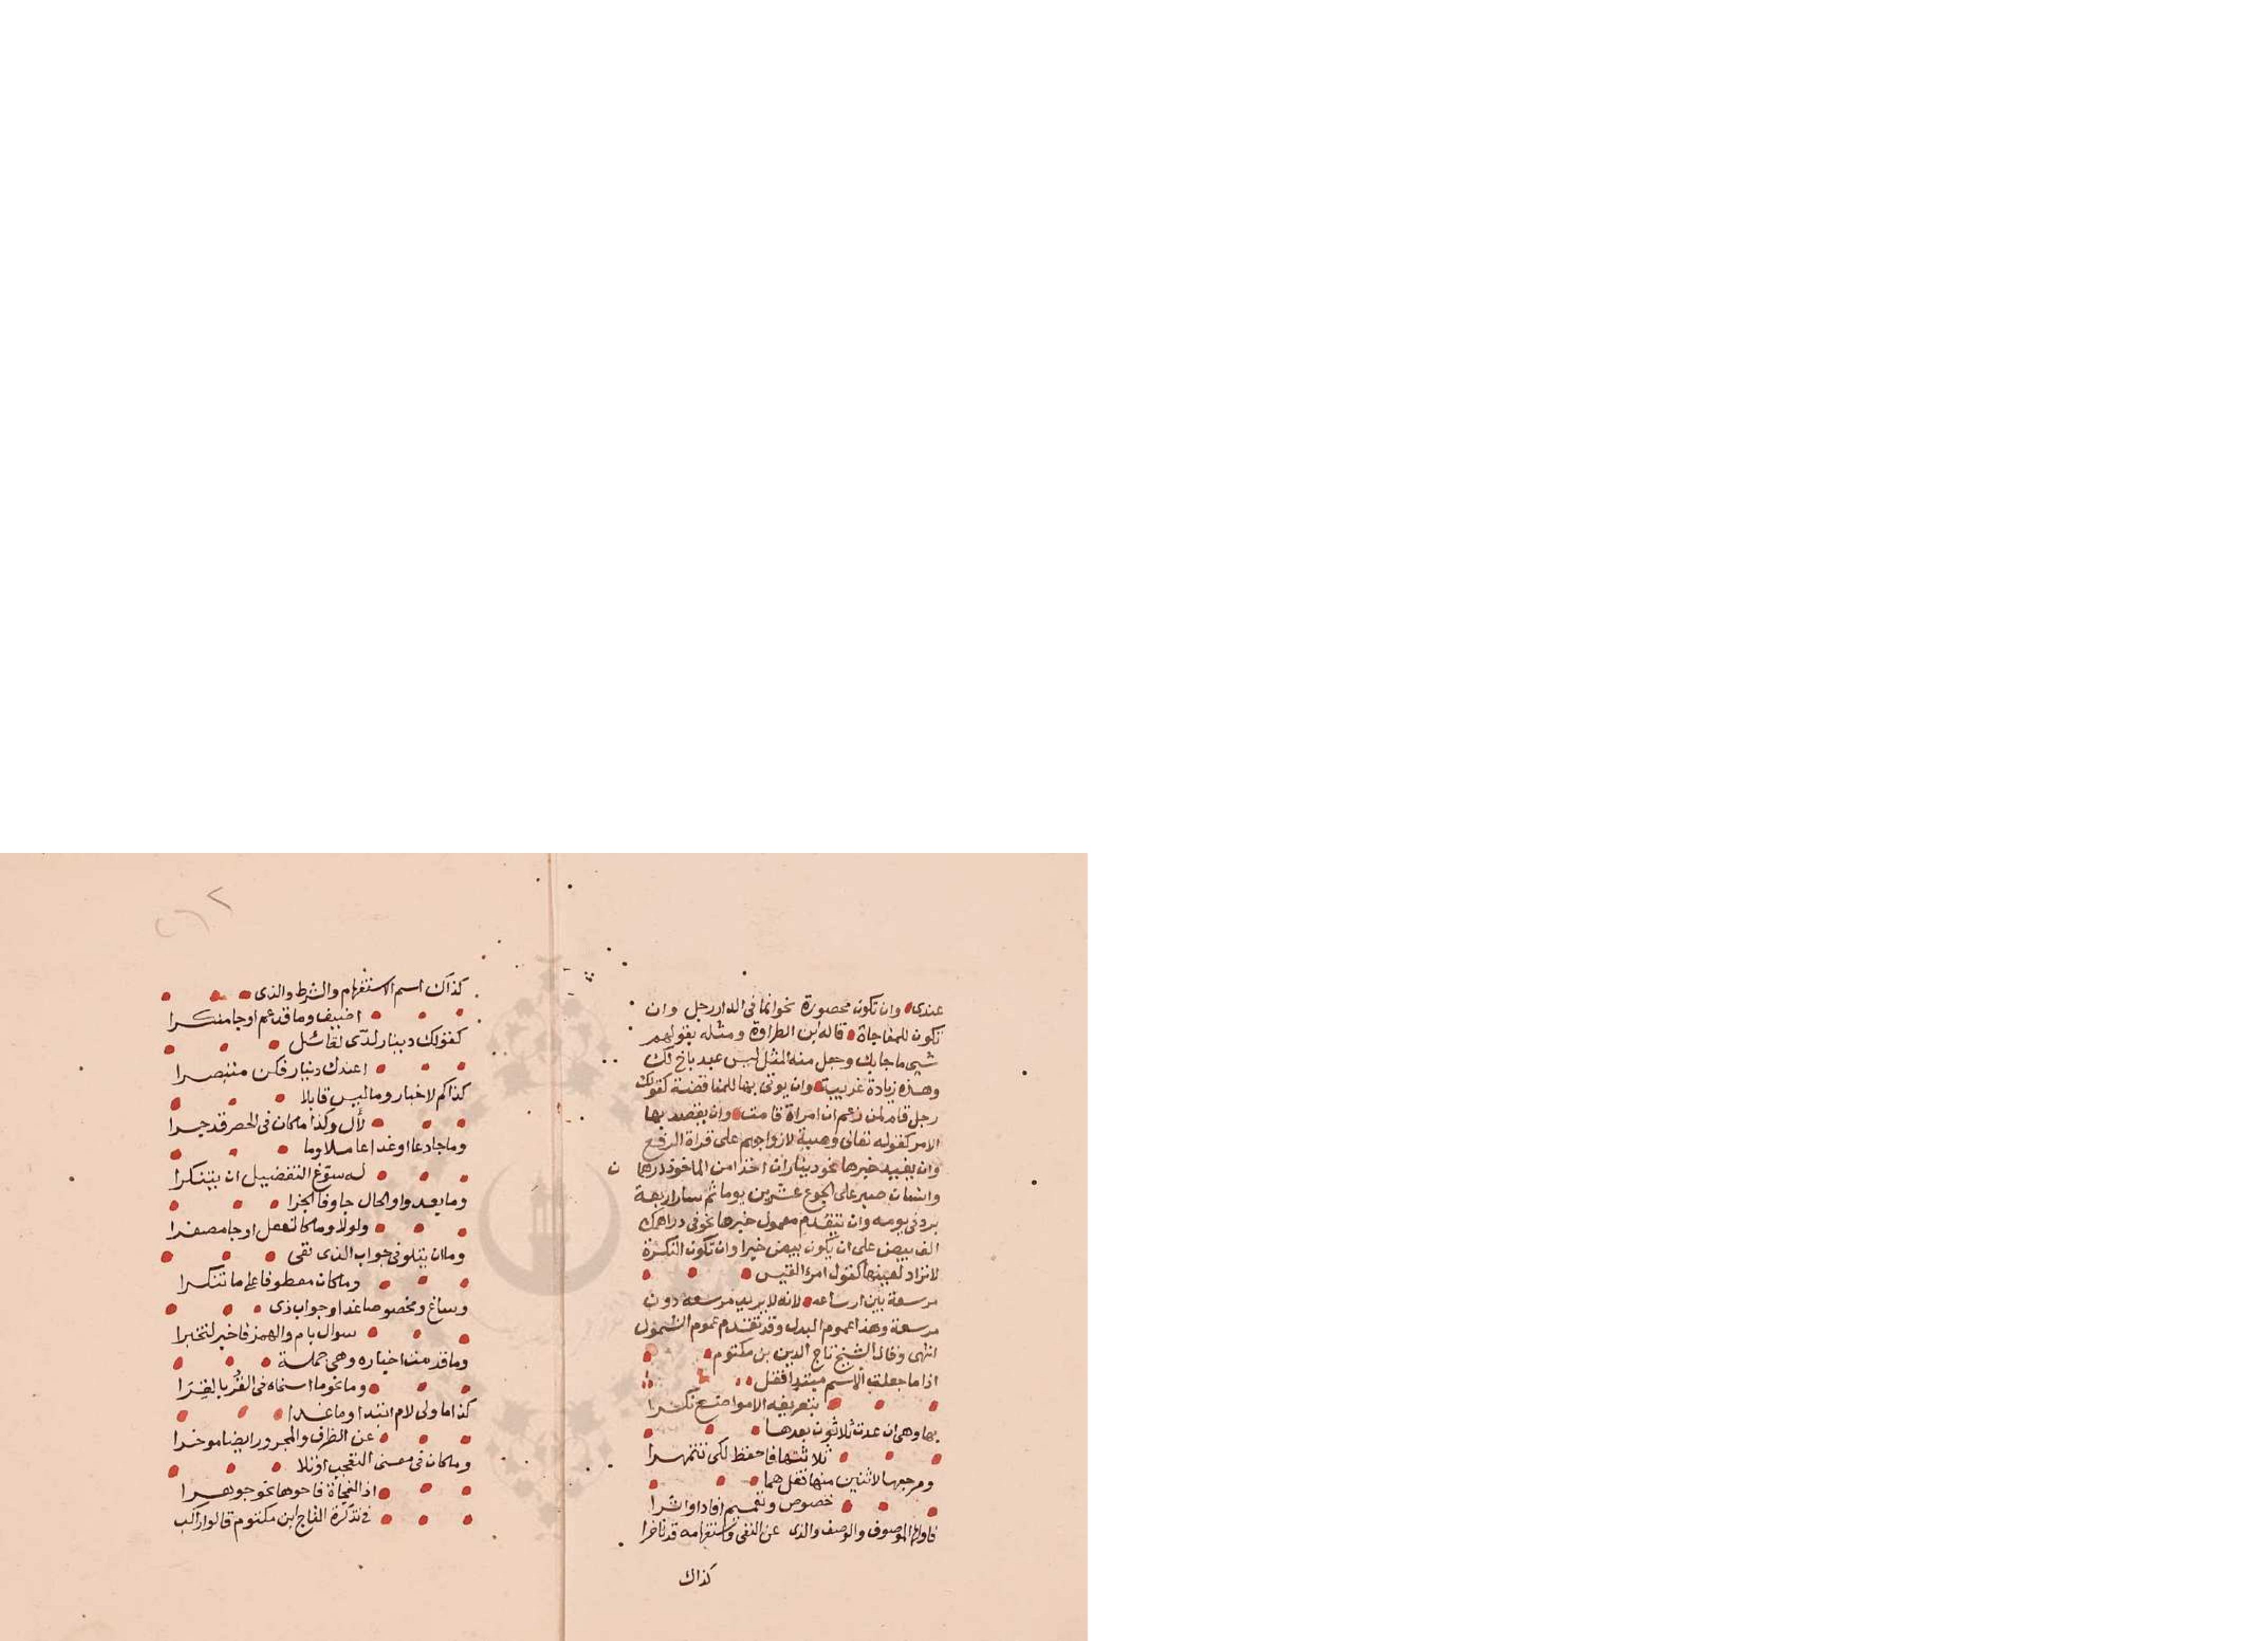 عندى وان تكون محصورة نحو انما فى الدار رجل وان
تكون للمفاجاة قاله ابن الطراوة ومثله بقولهم
شى ما جا بك وجعل منه المثل ليس عبد باخ لك
وهذه زيادة غريبة وان يوتى بها للمناقضة كقولك
رجل قام لمن زعم ان امراة قامت وان يقصد بها
الامر كقوله تعالى وصية لازواجهم على قراة الرفع
وان يفيد خبرها نحو ديناران اخذا من الماخوذ درهما
وانسان صبر على الجوع عشرين يوما ثم سار اربعة
برد فى يومه وان يتقدم معمول خبرها نحو فى دراهمك
الف بيض على ان يكون بيض خبرا وان تكون النكرة
لا تراد لعينها كقول امرء القيس
مرسعة بين ارساغه لانه لا يريد مرسعه دون
مرسعة وهذا عموم البدل وقد تقدم عموم الشمول
انتهى وقال الشيخ تاج الدين بن مكتوم
اذا ما جعلت الاسم مبتدا فقل
بتعريفه الا مواضع نكرا
بها وهى ان عدت ثلاثون بعدها
ثلاثتها فاحفظ لكى تتمهرا
ومرجعها لاثنين منها فقل هما
خصوص وتعميم افادا واثرا
فاولها الموصوف والوصف والذى عن النفى واستفهامه قد تاخرا
كذاك
كذاك اسم الاستفهام والشرط والذى
اضيف وما قد عم او جا منكرا
كقولك دينار لدى لقائل
اعندك دينار فكن متبصرا
كذا كم لاخبار وما ليس قابلا
لأل وكذا ما كان فى الحصر قد جرا
وما جا دعا او غدا عاملا وما
له سوغ التفضيل ان يتنكرا
وما بعد واو الحال جا وفا الجزا
ولولا وما كالفعل او جا مصغرا
وما ان يتلو فى جواب الذى نفى
وما كان معطوفا على ما تنكرا
وساغ ومخصوصا غدا وجواب ذى
سوال بام والهمز فاخبر لتخبرا
وما قدمت اخباره وهى جملة
وما نحو ما اسخاه فى القر بالقرا
كذا ما ولى لام ابتدا وما غدا
عن الظرف والمجرور ايضا موخرا
وما كان فى معنى التعجب او تلا
اذا لفجاة فاحوها نحو جوهرا
فى تذكرة التاج ابن مكتوم قالوا راكب